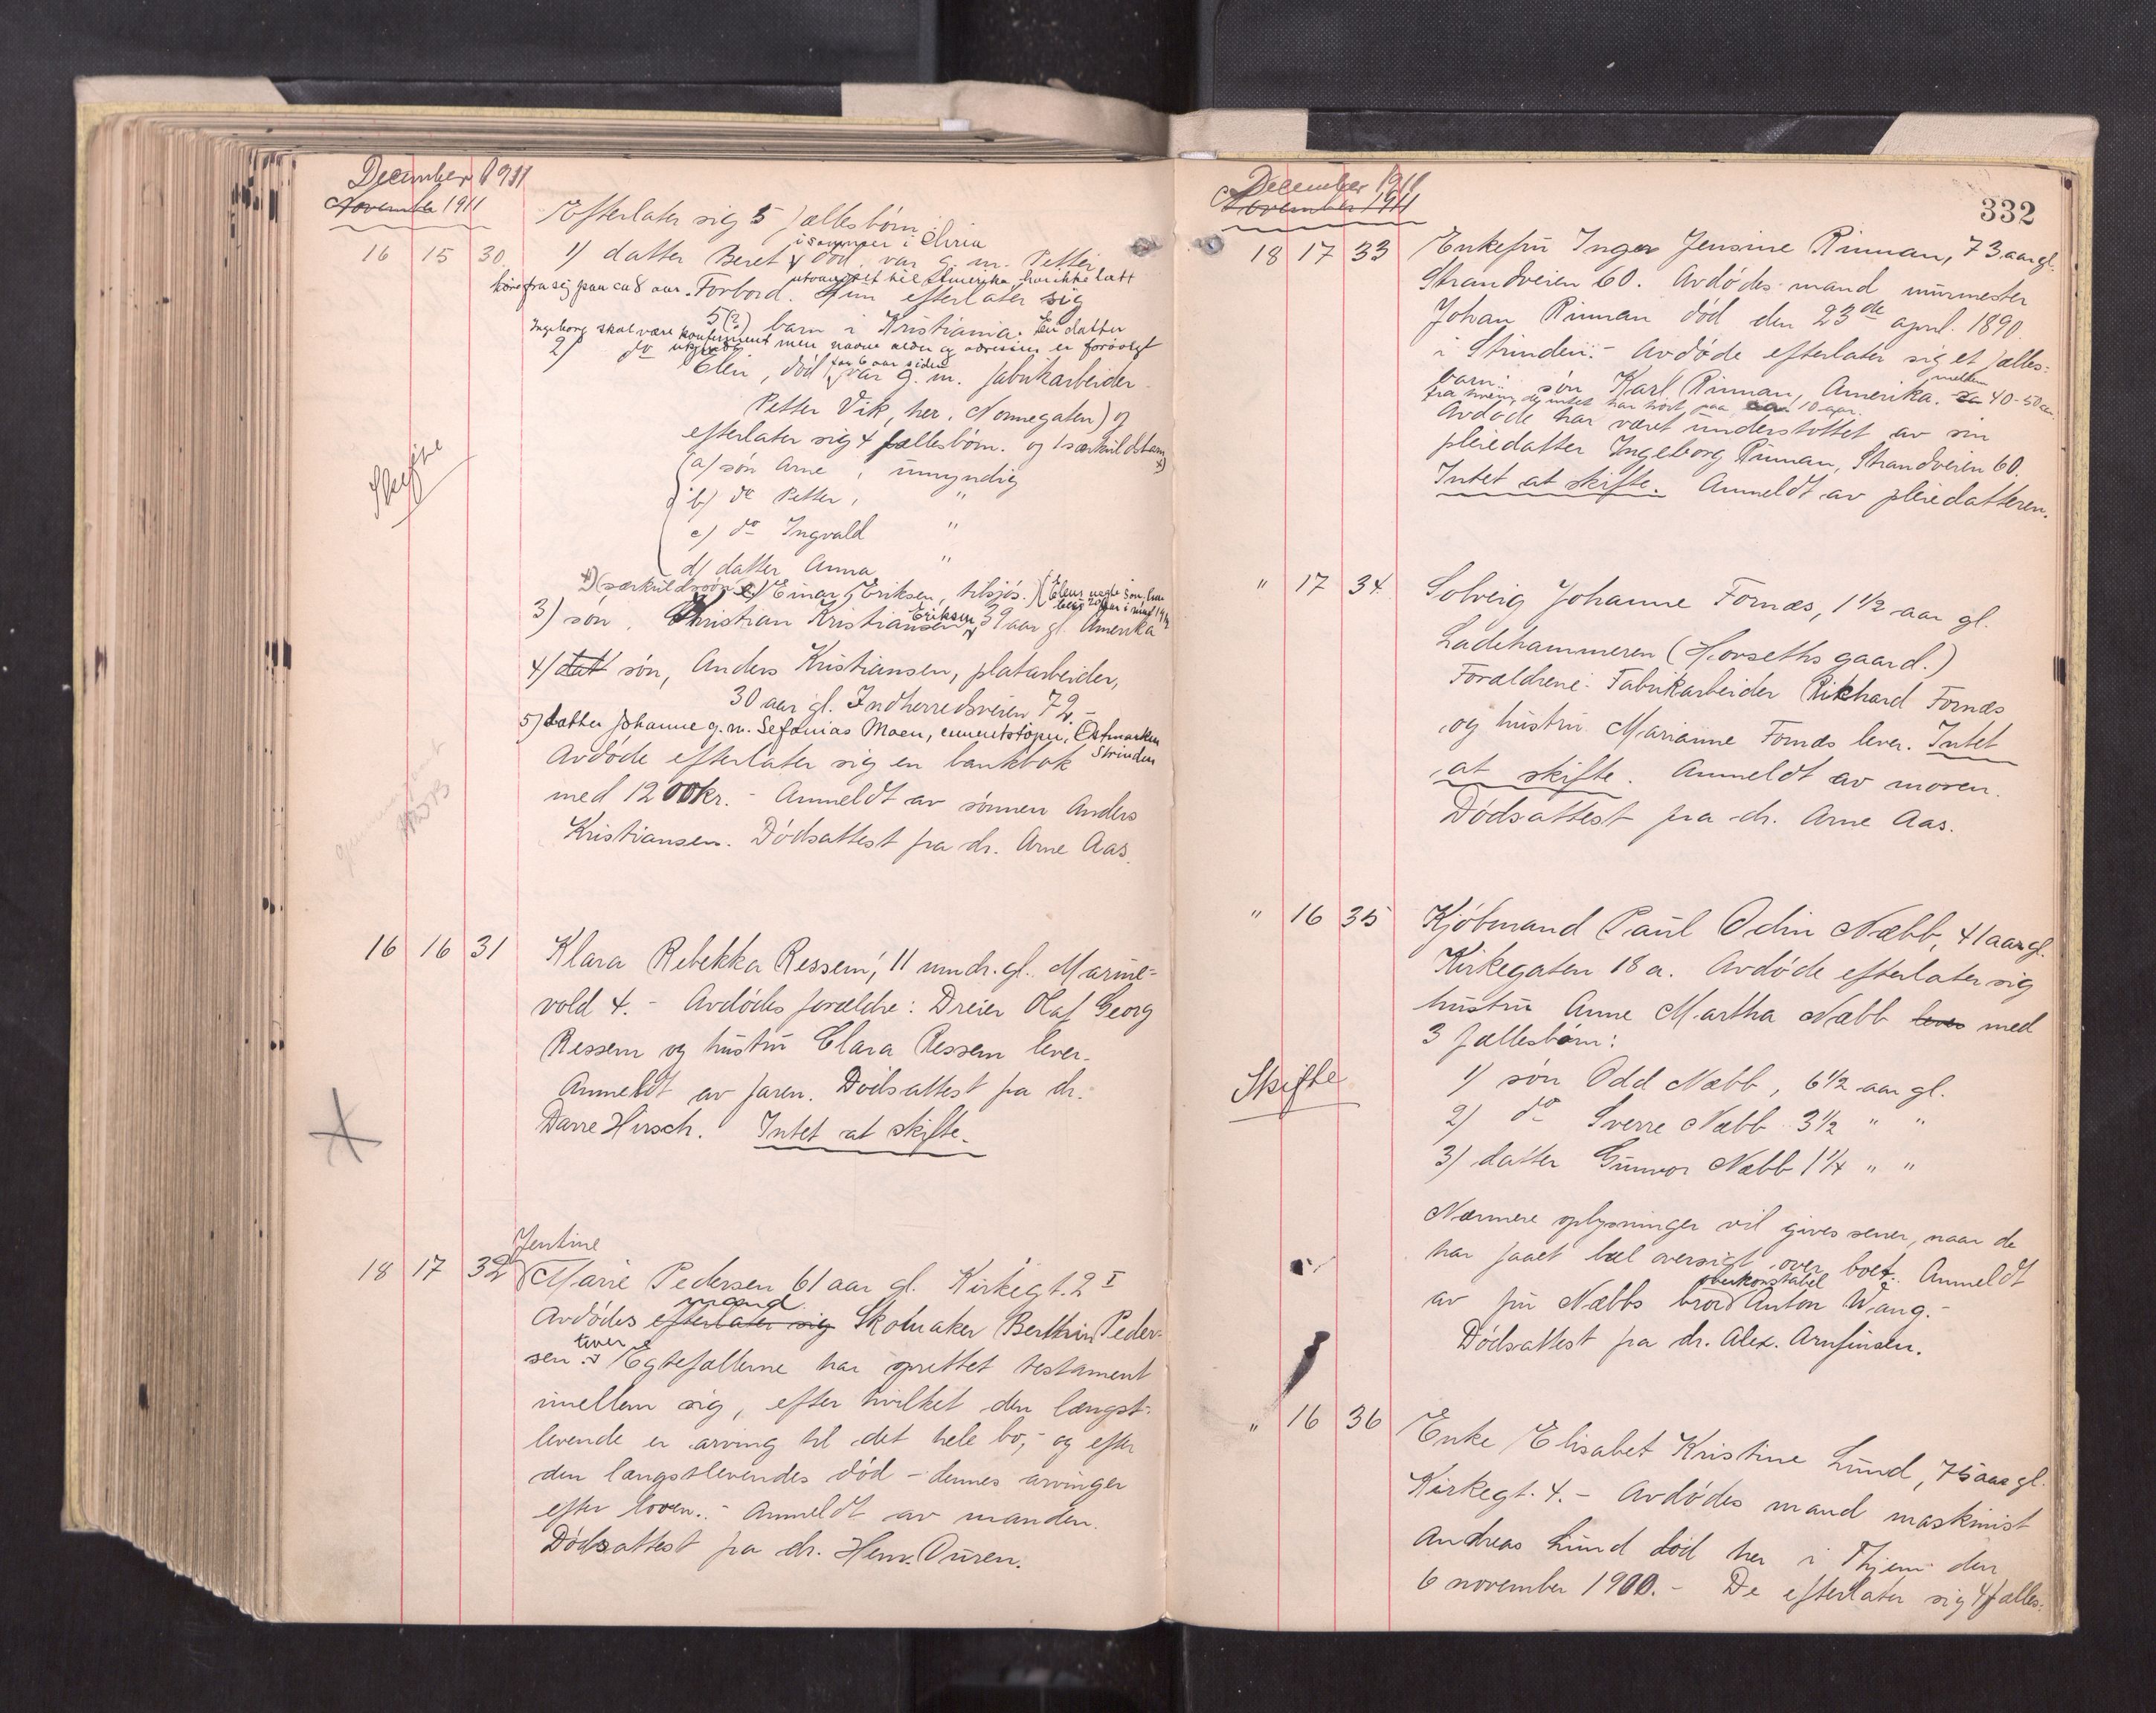 December 1911
November 1911
Efterlater sig 5 fællesbørn:
i sommer i Aliria
16 15 30. 1) datter Beret, død, var g. m. Petter
utvandret til Amerika, har ikke latt
høre fra sig paa ca 8 aar. Forbord. Hun efterlater sig
5(?) barn i Kristiania. En datter
Ingeborg skal være konfirmert men navne alder og adresser er forøvrigt
ukjendt
2) do Elen, død for 6 aar siden, var g. m. fabrikarbeider
Petter Vik, her, Nonnegaten) og
efterlater sig 4 fællesbørn. og 1 særkuldsbarn x)
a) søn Arne, umyndig
b) do Petter, "
c) do Ingvald "
d) datter Anna "
Skifte
x) (særkuldssøn e) Einar Eriksen, tilsjøs.) (Elens uegte søn,
3) søn, Christian Kristiansen Eriksen, 39 aar gl. Amerika
4) datt søn, Anders Kristiansen, platarbeider,
30 aar gl. Indherredsveien 72.-
5) datter Johanne g. m. Sefanias Moen, cementstøper, Østmarken
Strinden
Avdøde efterlater sig en bankbok
med 1200 kr. - Anmeldt av sønnen Anders
Kristiansen. Dødsattest fra dr. Arne Aas.
16 16 31 Klara Rebekka Ressem, 11 mndr. gl. Marine-
vold 4. - Avdødes forældre: Dreier Olaf Georg
Ressem og hustru Clara Ressem lever.
Anmeldt av faren. Dødsattest fra dr.
Darre Hirsch. Intet at skifte.
Jentine
18 17 32 Marie Pedersen 61 aar gl. Kirkegt. 2 I
mand
Avdødes efterlater sig Skomaker Berthin Peder-
sen lever. Egtefællerne har oprettet testament
imellem sig, efter hvilket den længst-
levende er arving til det hele bo, - og efter
den længstlevendes død - dennes arvinger
efter loven. - Anmeldt av manden.
Dødsattest fra dr. Henr. Ouren.
332
December 1911
November 1911
18 17 33 Enkefru Inger Jensine Rinnan, 73 aar gl.
Strandveien 60. Avdødes mand murmester
Johan Rinnan død den 23de april 1890
i Strinden. - Avdøde efterlater sig et fælles-
barn: søn Karl Rinnan, Amerika. mellem ca 40-50 aar.
fra hvem de intet har hørt paa ca. 10 aar.
Avdøde har været understøttet av sin
pleiedatter Ingeborg Rinnan, Strandveien 60.
Intet at skifte. Anmeldt av pleiedatteren.
" 17 34 Solveig Johanne Fornæs, 1 1/2 aar gl.
Ladehammeren (Horseths gaard.)
Forældrene: Fabrikarbeider Rikhard Fornæs
og hustru Marianne Fornæs lever. Intet
at skifte. Anmeldt av moren.
Dødsattest fra dr. Arne Aas.
" 16 35 Kjøbmand Paul Odin Næbb, 41 aar gl.
Kirkegaten 18 a. Avdøde efterlater sig
hustru Anne Martha Næbb lever med
3 fællesbørn:
Skifte
1) søn Odd Næbb, 6 1/2 aar gl.
2) do Sverre Næbb 3 1/2 " "
3) datter Gunvor Næbb 1 1/4 " "
Nærmere oplysninger vil gives sener, naar de
har faaet hel oversigt over boet. Anmeldt
av fru Næbbs bror overkonstabel Anton Wang. -
Dødsattest fra dr. Alex. Arnfinsen.
" 16 36 Enke Elisabet Kristine Lund, 75 aar gl.
Kirkegt. 4. - Avdødes mand maskinist
Andreas Lund død her i Thjem den
6 november 1900. - De efterlater sig 4 fælles-